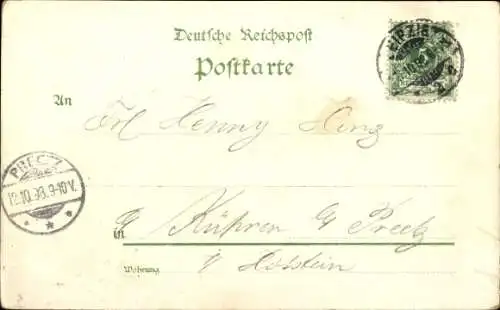 Deutsche Reichspost
Postkarte
LEIPZIG
An
Frl Henny Hinz
PREETZ
12.10.98.9-10V.
in Kühren b/ Preetz
Wohnung i/ Holstein